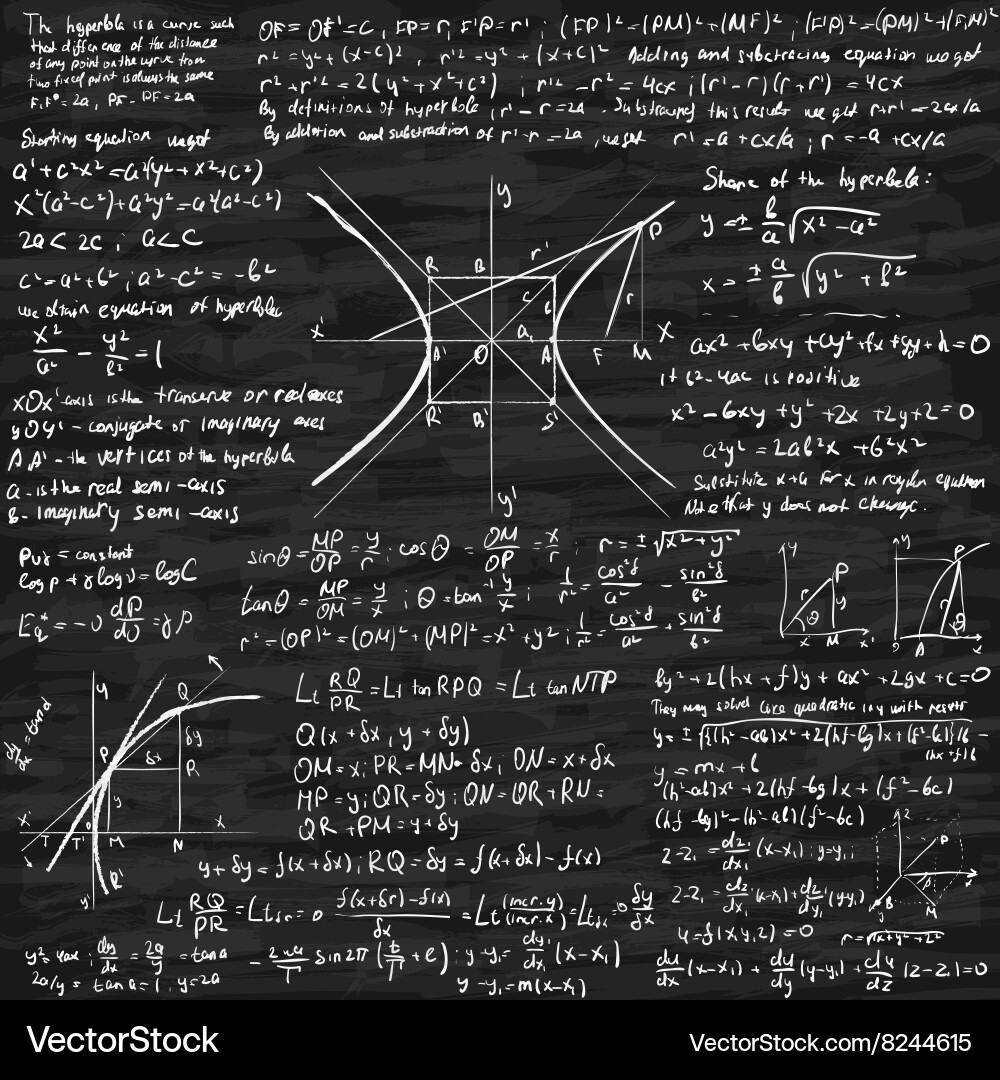 The hyperbola is a curve such
that difference of the distance
of any point on the curve from
two fixed point is always the same
F.F°=2a, PF-PF=2a
OF = OF'=C, FP=r, F'P=r' ; (FP)²=(PM)²+(MF)² ; (F'P)²=(PM)²+(F'M)²
r²=y²+(x-c)², r'²=y²+(x+c)² Adding and subctracing equation we get
r²+r'²=2(y²+x²+c²) ; r'²-r²=4cx ; (r'-r)(r+r')=4cx
By definitions of hyperbola ; r'-r=2a . Substraring this result we get r+r'=2cx/a
By addotion and substraction of r'-r=2a , we get r'=a+cx/a ; r=-a+cx/a
Starting equation we get
a'+c²x²=a²(y²+x²+c²)
x²(a²-c²)+a²y²=a²(a²-c²)
2a<2c ; a<c
c²=a²+b² ; a²-c²=-b²
we obtain equation of hyperbola
x²/a² - y²/b² = 1
xOx'-axis is the transerve or real axes
yOy' - conjugate or imaginary axes
AA' - the vertices of the hyperbola
a - is the real semi-axis
b - imaginary semi-axis
y
P
R B r'
c
r
x' a, x
A' O A F M
R' B' S'
y'
Shape of the hyperbola:
y=± b/a √x²-a²
x=± a/b √y²+b²
ax²+bxy+cy²+fx+gy+h=0
if b²-4ac is positive
x²-6xy+y²+2x+2y+2=0
a²y²=2ab²x+b²x²
Substitute x+a for x in regular equation
Note that y does not change.
pvɣ = constant
log p+ɣ log v=log C
E*q=-v dp/dv=ɣp
sinθ=MP/OP=y/r ; cosθ=OM/OP=x/r ; r=±√x²+y²
tanθ=MP/OM=y/x ; θ=tan⁻¹ y/x ; 1/r²=cos²δ/a² - sin²δ/b²
r²=(OP)²=(OM)²+(MP)²=x²+y² ; 1/r²=cos²δ/a² + sin²δ/b²
y P
r y
θ
x M x'
y P
θ
A x
dy/dx=tand
y Q
δy
P δx R
y
x' x
T T' M N
R'
y'
Lt RQ/PR=Lt tan RPQ=Lt tan NTP
Q(x+δx, y+δy)
OM=x; PR=MN=δx; ON=x+δx
MP=y; QR=δy; QN=QR+RN=
QR+PM=y+δy
y+δy=f(x+δx); RQ=δy=f(x+δx)-f(x)
Lt RQ/PR=Lt δx=0 f(x+δx)-f(x)/δx=Lt(incr.y)/(incr.x)=Lt δx=0 δy/δx
y²=4ax ; dy/dx=2a/y=tana
2a/y=tana=1, y=2a
sin2π(t/T+e) ; y-y₁=dy₁/dx₁(x-x₁)
y-y₁=m(x-x₁)
by²+2(hx+f)y+ax²+2gx+c=0
They may solved like quadratic in y with results
y=mx+b
(h²-ab)x²+2(hf-bg)x+(f²-bc)
(hf-bg)²-(h²-ab)(f²-bc)
z-z₁=dz₁/dx₁(x-x₁) ; y=y₁ ;
z-z₁=dz₁/dx₁(x-x₁)+dz₁/dy₁(y-y₁)
u=f(x,y,z)=0
z
P
B M
y
x
r=√x²+y²+z²
du/dx(x-x₁)+du/dy(y-y₁)+du/dz(z-z₁)=0
VectorStock®
VectorStock.com/8244615